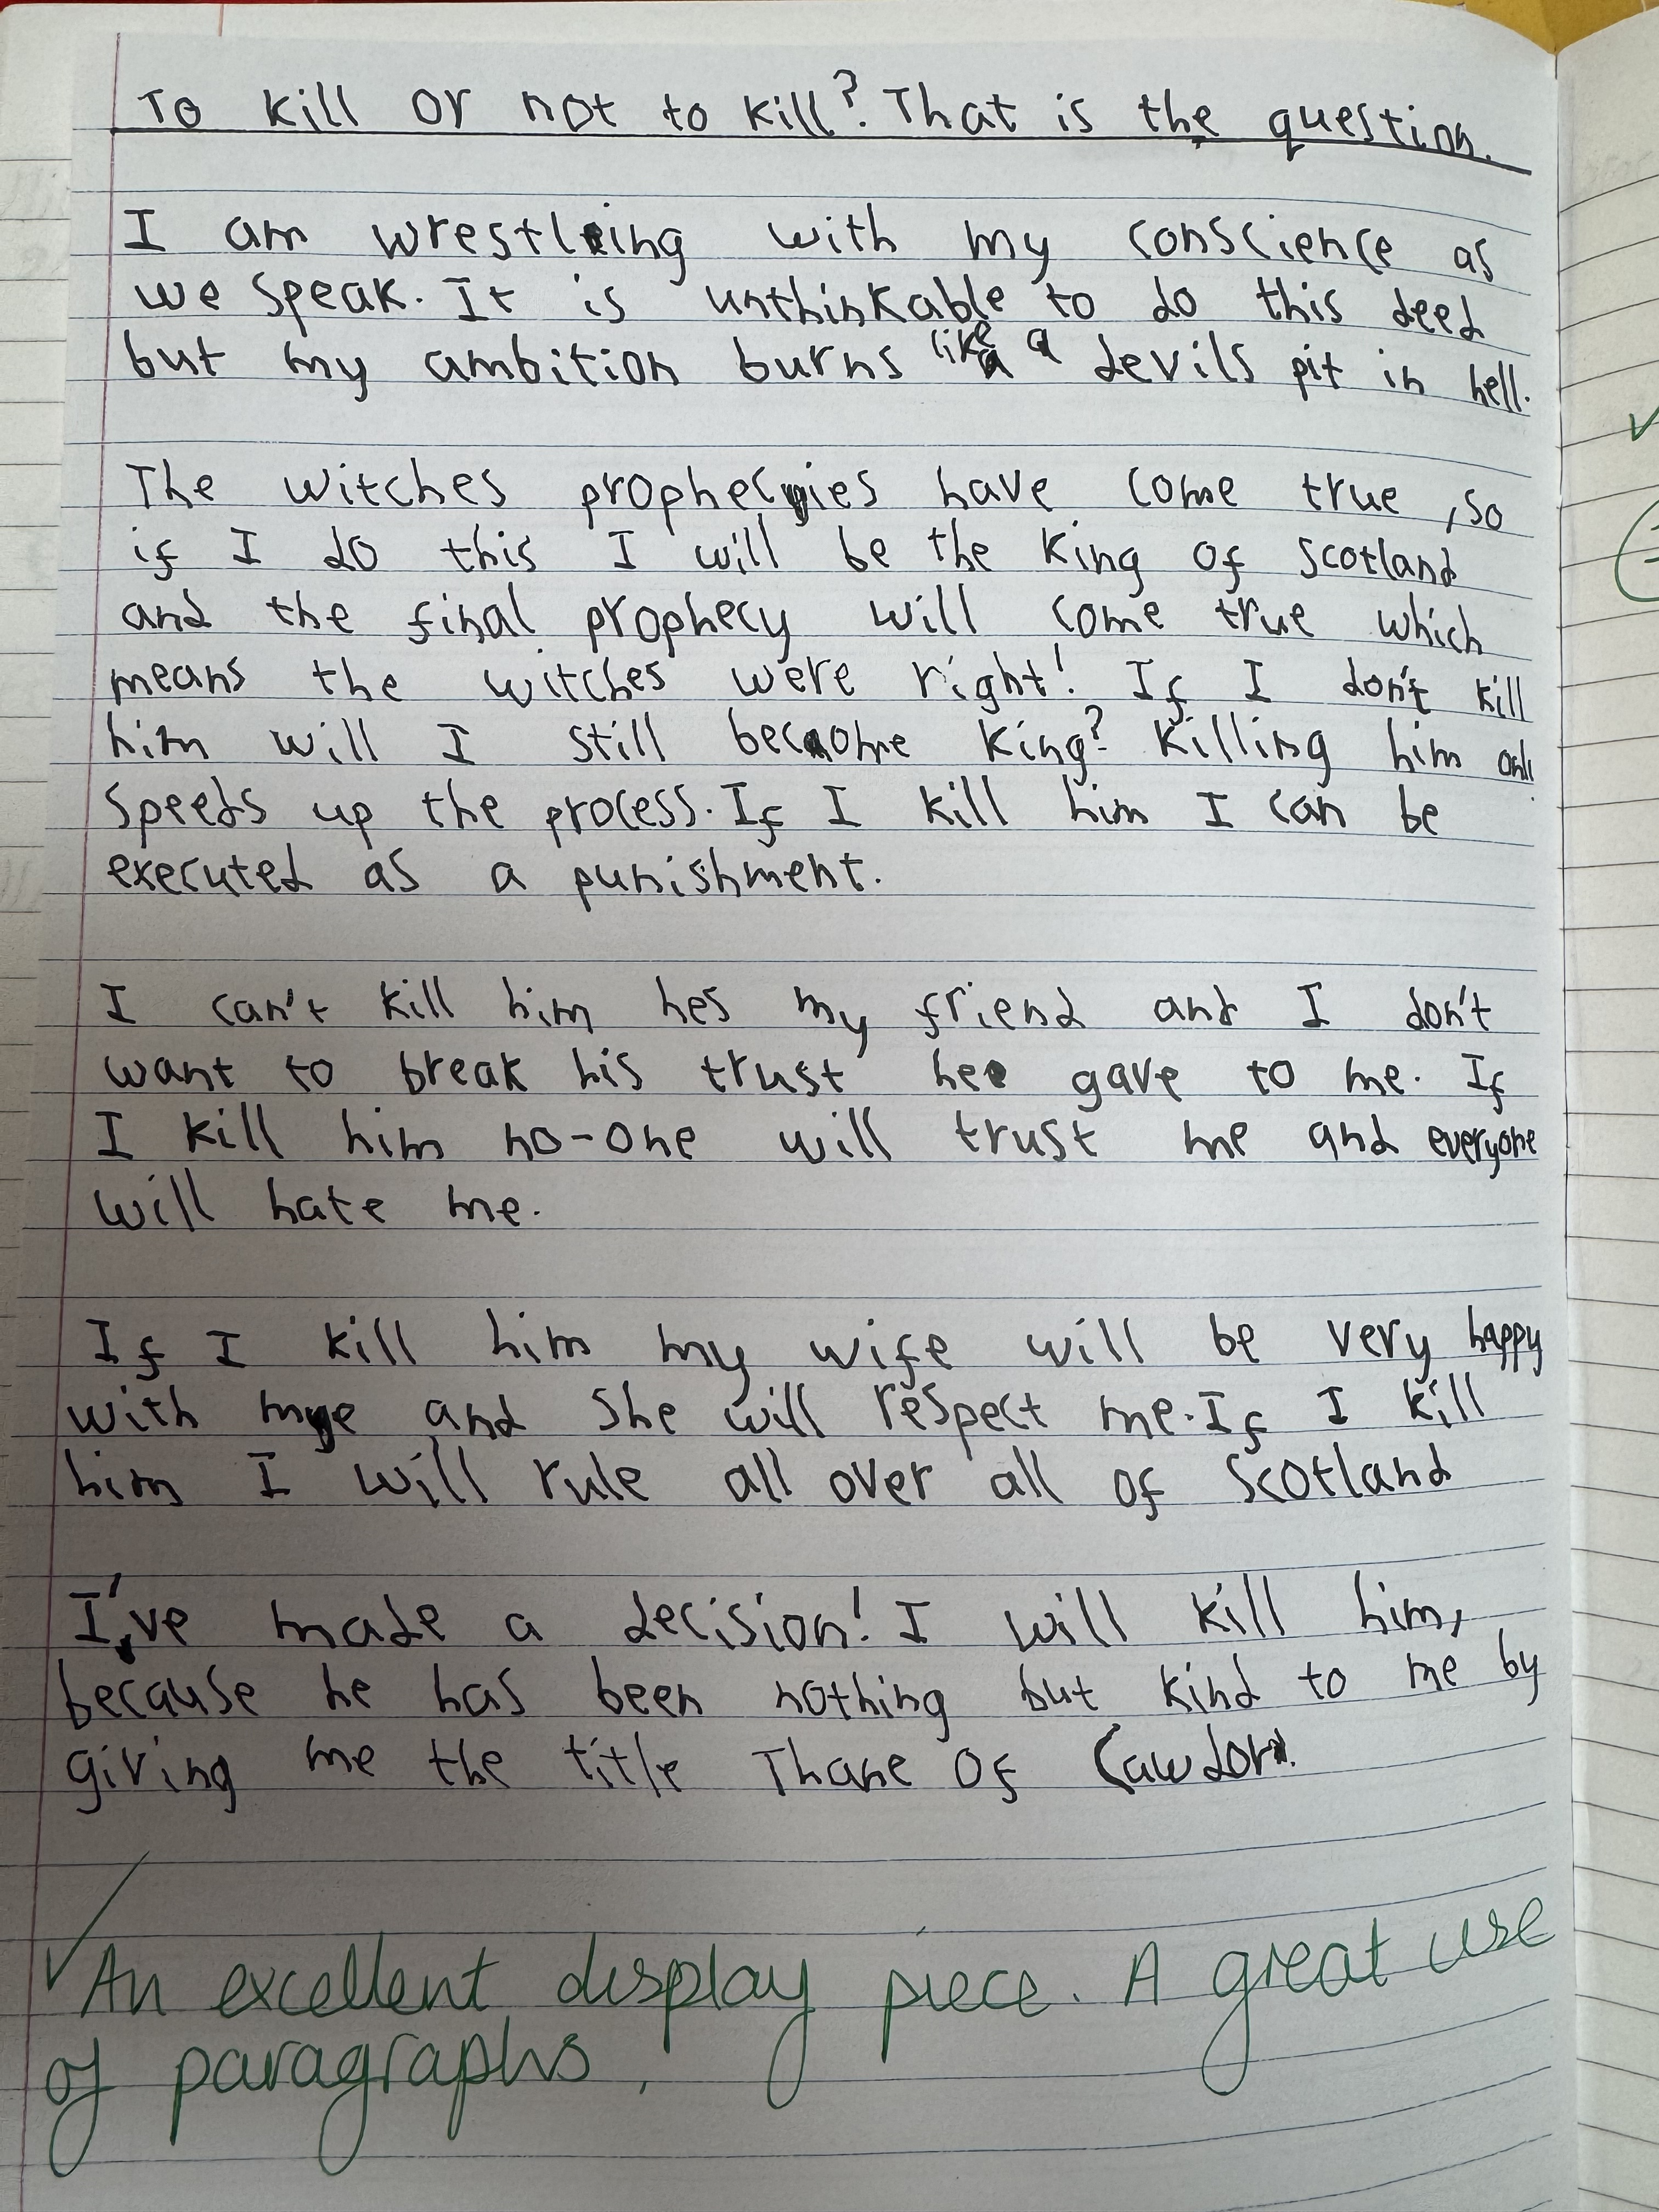 To kill or not to kill? That is the question.
I am wrestling with my conscience as
we speak. It is unthinkable to do this deed
but my ambition burns like a devils pit in hell.
The witches prophecies have come true, so
if I do this I will be the king of Scotland
and the final prophecy will come true which
means the witches were right! If I don't kill
him will I still become king? Killing him
speeds up the process. If I kill him I can be
executed as a punishment.
I can't kill him hes my friend and I don't
want to break his trust he gave to me. If
I kill him no-one will trust me and everyone
will hate me.
If I kill him my wife will be very happy
with me and she will respect me. If I kill
him I will rule all over all of Scotland
I've made a decision! I will kill him,
because he has been nothing but kind to me by
giving me the title Thane Of Cawdor.
An excellent display piece. A great use
of paragraphs.